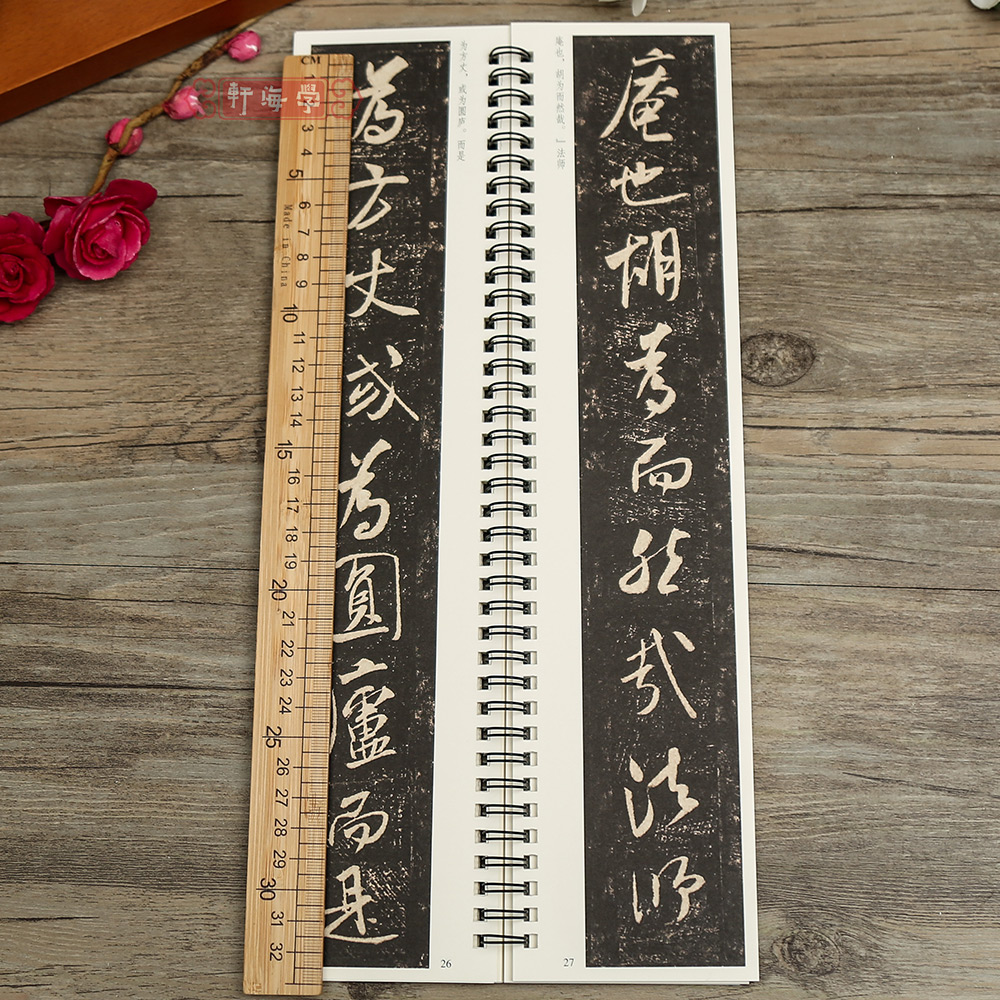 軒海學
CM
1
3
4
5
6
7
8
9
10
11
12
13
14
15
16
17
18
19
20
21
22
23
24
25
26
27
28
29
30
31
32
Made in China
為方丈或為圓廬而是
为方丈，或为圆庐。而是
26
庵也，胡为而然哉。」法师
庵也胡為而然哉法師
27